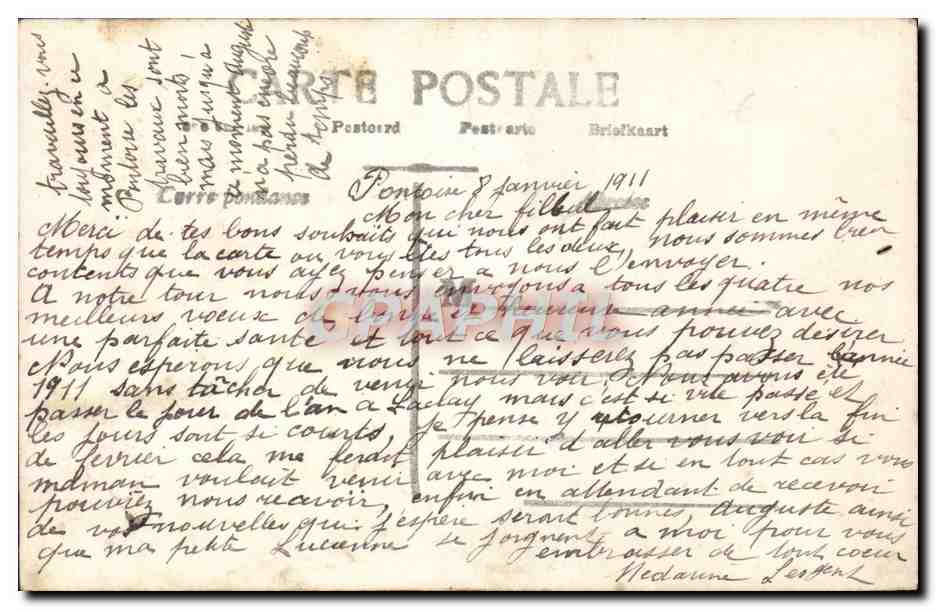 CARTE POSTALE
Postcard Postcarte Briefkaart
Correspondance
Pontoise 8 Janvier 1911
Mon cher filleul
Merci de tes bons souhaits qui nous ont fait plaisir en même
temps que la carte où vous êtes tous les deux, nous sommes bien
contents que vous ayez penser a nous l'envoyer.
A notre tour nous vous envoyons a tous les quatre nos
meilleurs voeux de bonne et heureuse année avec
une parfaite santé et tout ce que vous pouvez désirer
Nous esperons que vous ne laisserez pas passer l'année
1911 sans tâcher de venir nous voir. Nous avons été
passer le jour de l'an a mais c'est si vite passé et
les jours sont si courts, je pense y retourner vers la fin
de fevrier cela me ferait plaisir d'aller vous voir si
maman voulait venir avec moi et si en tout cas vous
pouviez nous recevoir, enfin en attendant de recevoir
de vos nouvelles qui j'espère seront bonnes, Auguste ainsi
que ma petite Lucienne se joignent a moi pour vous
embrasser de tout coeur
travaillez-vous
toujours en ce
moment a
Pontoise les
travaux sont
bien morts,
mais jusqu'a
ce moment Auguste
n'a pas encore
perdu beaucoup
de temps
CPAPHIL